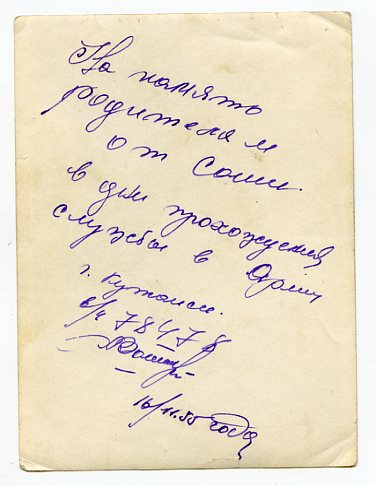 На память
родителям
от Саши.
в дни прохождения
службы в Армии
г. Кутаиси.
в/ч 78478
16/11.55 года